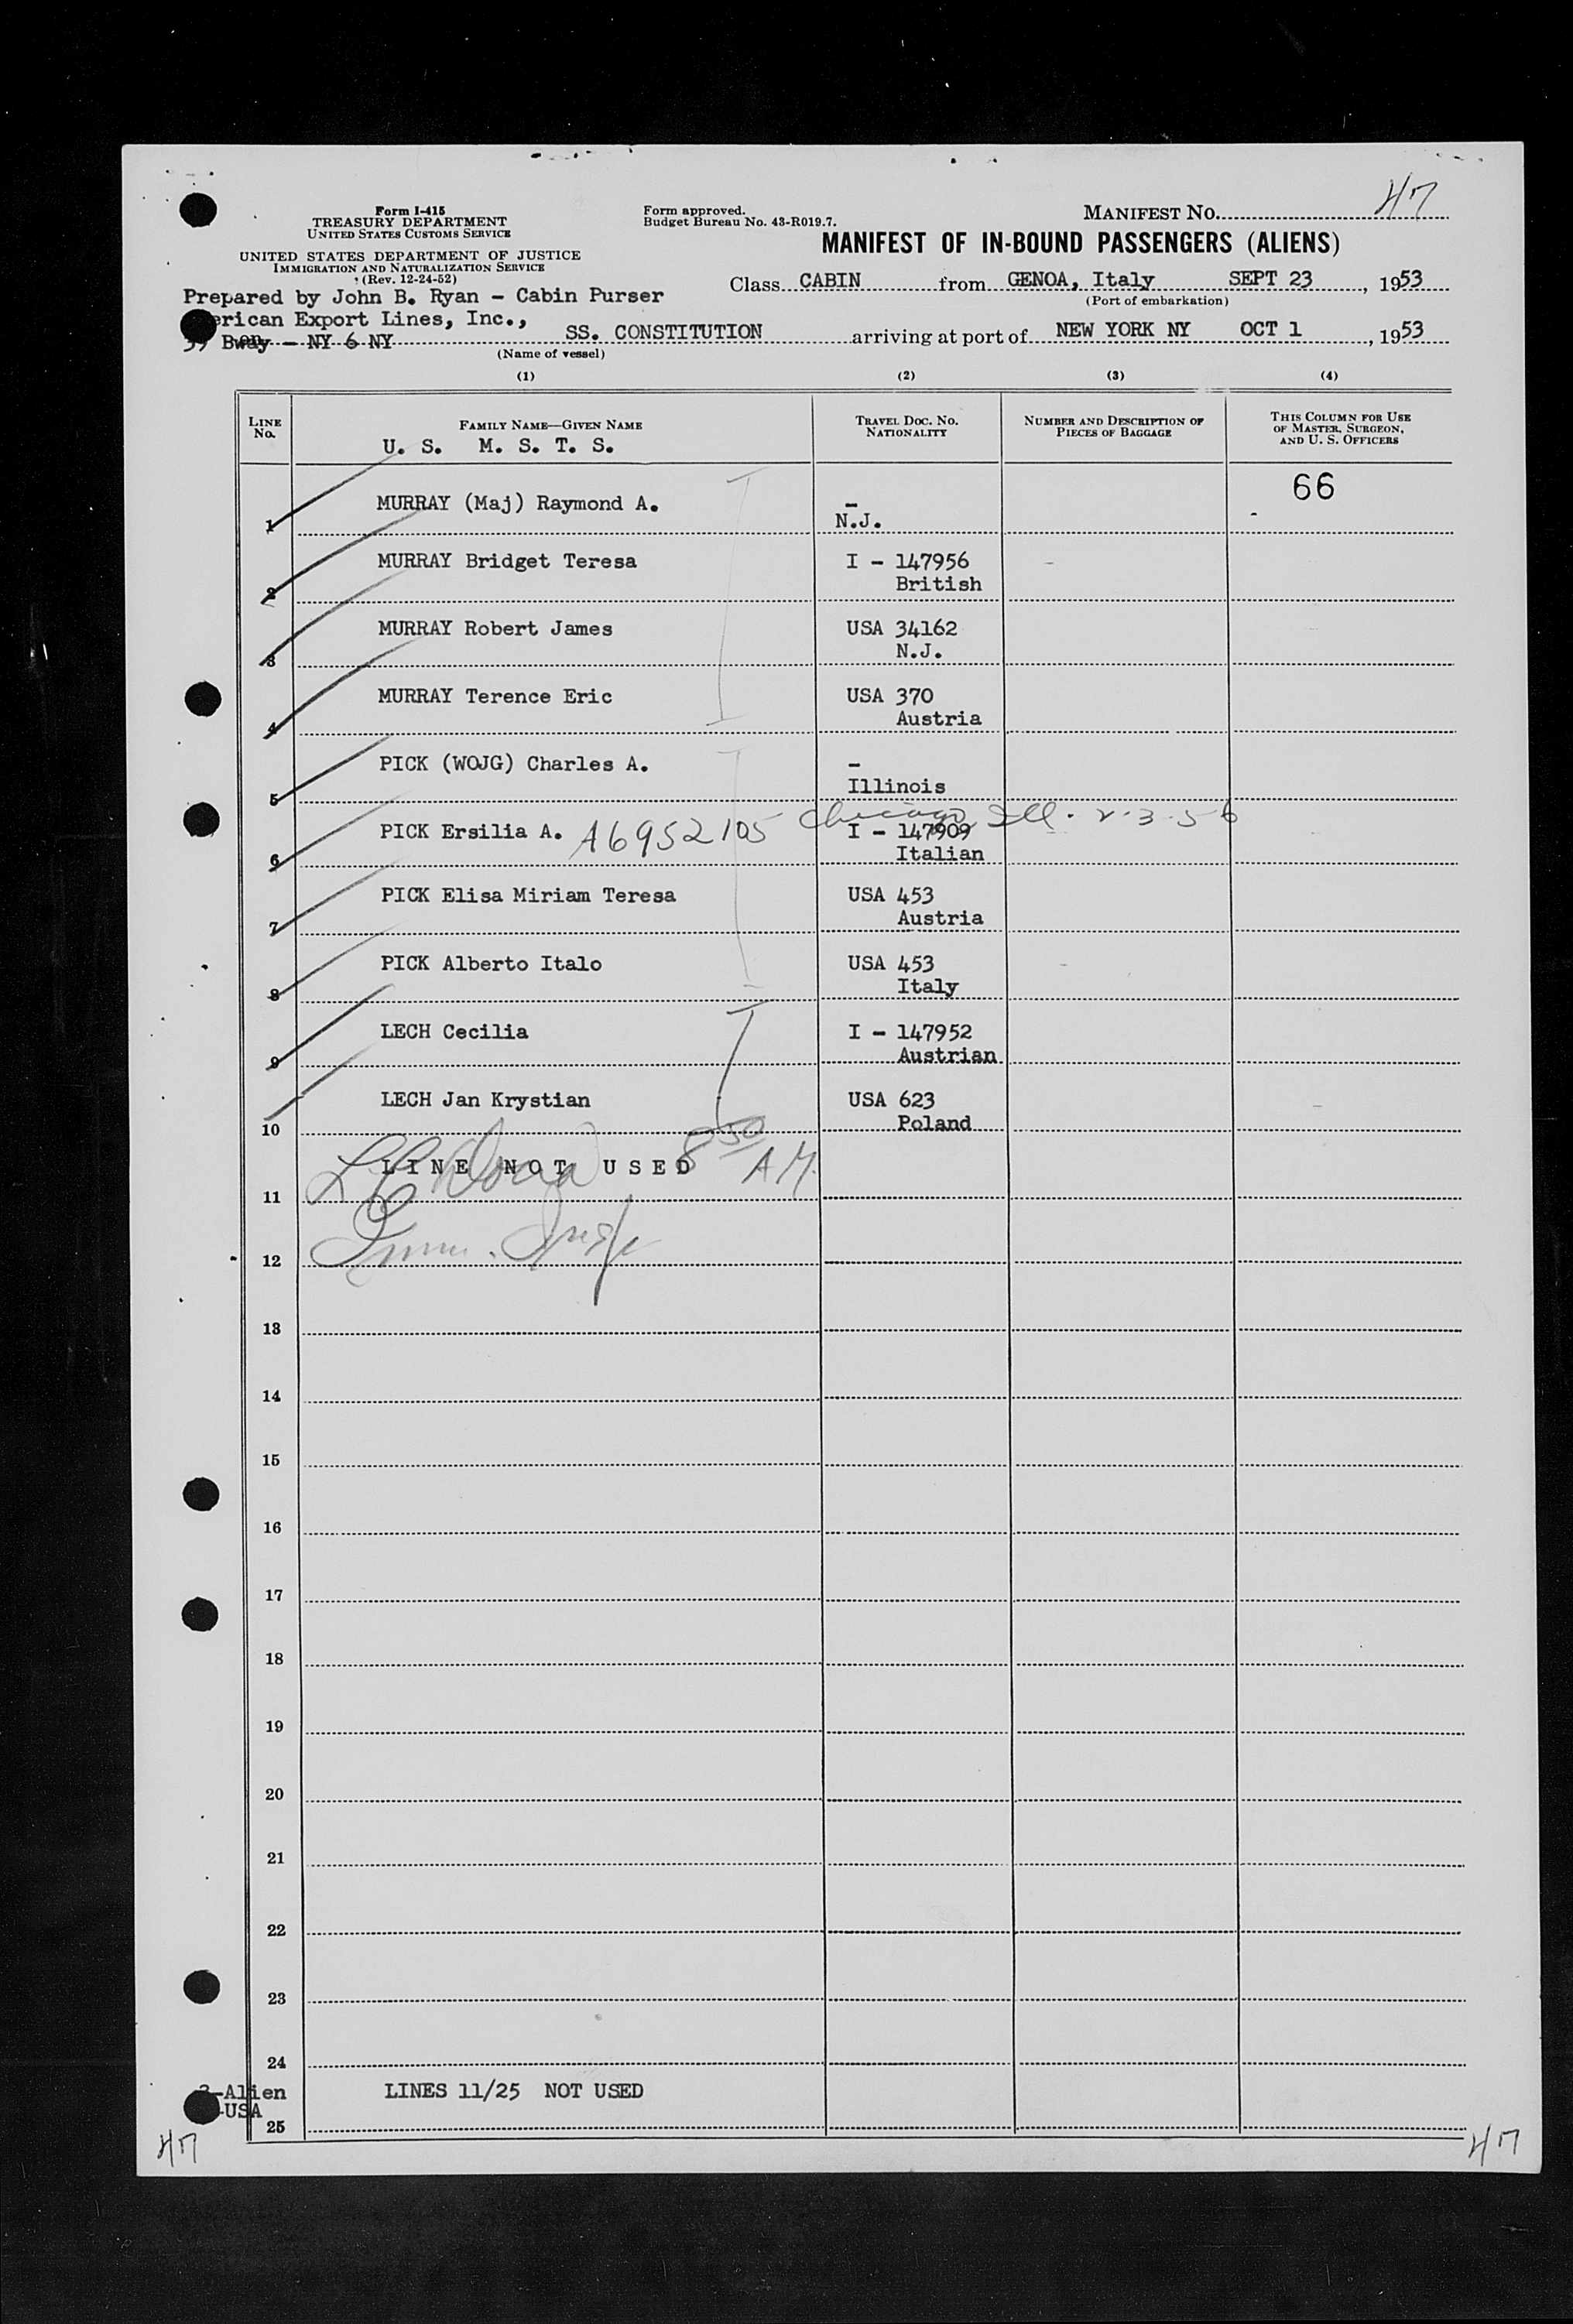 47
Form I-415
TREASURY DEPARTMENT
UNITED STATES CUSTOMS SERVICE
UNITED STATES DEPARTMENT OF JUSTICE
IMMIGRATION AND NATURALIZATION SERVICE
(Rev. 12-24-52)
Form approved.
Budget Bureau No. 43-R019.7.
MANIFEST NO.
MANIFEST OF IN-BOUND PASSENGERS (ALIENS)
Class CABIN from GENOA, Italy SEPT 23, 1953
(Port of embarkation)
Prepared by John B. Ryan - Cabin Purser
erican Export Lines, Inc.,
Bway - NY 6 NY SS. CONSTITUTION arriving at port of NEW YORK NY OCT 1, 1953
(Name of vessel)
(1) (2) (3) (4)
LINE No. FAMILY NAME—GIVEN NAME TRAVEL DOC. NO. NATIONALITY NUMBER AND DESCRIPTION OF PIECES OF BAGGAGE THIS COLUMN FOR USE OF MASTER, SURGEON, AND U. S. OFFICERS
U. S. M. S. T. S.
66
1 MURRAY (Maj) Raymond A. -
N.J.
2 MURRAY Bridget Teresa I - 147956
British
3 MURRAY Robert James USA 34162
N.J.
4 MURRAY Terence Eric USA 370
Austria
5 PICK (WOJG) Charles A. -
Illinois
Chicago Ill. 2.3.56
6 PICK Ersilia A. A6952105 I - 147909
Italian
7 PICK Elisa Miriam Teresa USA 453
Austria
8 PICK Alberto Italo USA 453
Italy
9 LECH Cecilia I - 147952
Austrian
10 LECH Jan Krystian USA 623
Poland
8 50 AM.
11 LINE NOT USED
12 Imm. Insp
13
14
15
16
17
18
19
20
21
22
23
24
-Alien LINES 11/25 NOT USED
-USA
25
47 47